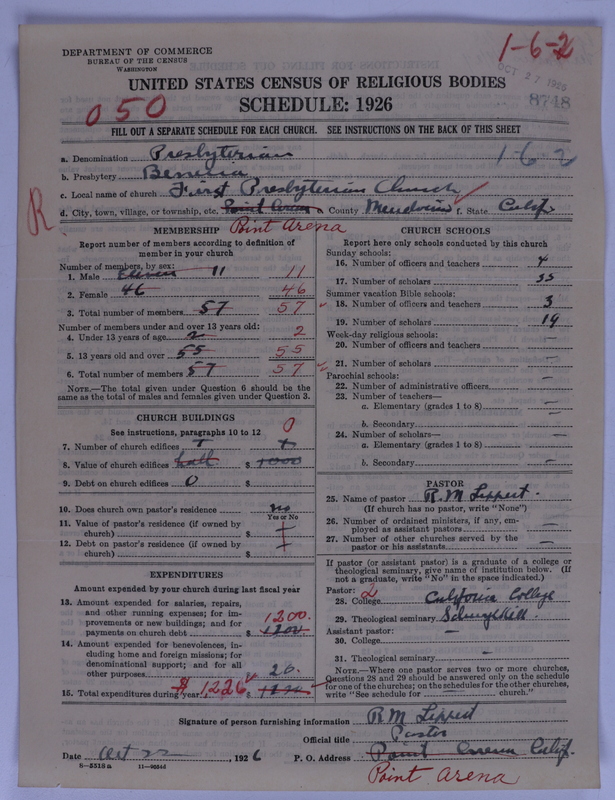 DEPARTMENT OF COMMERCE
BUREAU OF THE CENSUS
WASHINGTON
1-6-2
OCT 27 1926
8748
UNITED STATES CENSUS OF RELIGIOUS BODIES
SCHEDULE: 1926
050
FILL OUT A SEPARATE SCHEDULE FOR EACH CHURCH. SEE INSTRUCTIONS ON THE BACK OF THIS SHEET
a. Denomination Presbyterian
1-6-2
b. Presbytery Benicia
c. Local name of church First Presbyterian Church
R
d. City, town, village, or township, etc. Point Arena County Mendocino f. State Calif.
Point Arena
MEMBERSHIP
Report number of members according to definition of member in your church
Number of members, by sex:
1. Male Eleven 11 11
2. Female 46 46
3. Total number of members 57 57
Number of members under and over 13 years old:
4. Under 13 years of age 2 2
5. 13 years old and over 55 55
6. Total number of members 57 57
NOTE.—The total given under Question 6 should be the
same as the total of males and females given under Question 3.
CHURCH BUILDINGS
See instructions, paragraphs 10 to 12 0
7. Number of church edifices 1 1
8. Value of church edifices hall $ 1000
9. Debt on church edifices 0 $
10. Does church own pastor's residence no
Yes or No
11. Value of pastor's residence (if owned by
church) $
12. Debt on pastor's residence (if owned by
church) $
EXPENDITURES
Amount expended by your church during last fiscal year
13. Amount expended for salaries, repairs,
and other running expenses; for im-
provements or new buildings; and for
payments on church debt $ 1200. 1200.
14. Amount expended for benevolences, in-
cluding home and foreign missions; for
denominational support; and for all
other purposes 26.
15. Total expenditures during year $ 1226 $
CHURCH SCHOOLS
Report here only schools conducted by this church
Sunday schools:
16. Number of officers and teachers 4
17. Number of scholars 35
Summer vacation Bible schools:
18. Number of officers and teachers 3
19. Number of scholars 19
Week-day religious schools:
20. Number of officers and teachers —
21. Number of scholars —
Parochial schools:
22. Number of administrative officers —
23. Number of teachers—
a. Elementary (grades 1 to 8) —
b. Secondary —
24. Number of scholars—
a. Elementary (grades 1 to 8) —
b. Secondary —
PASTOR
25. Name of pastor R. M. Lippert.
(If church has no pastor, write "None")
26. Number of ordained ministers, if any, em-
ployed as assistant pastors —
27. Number of other churches served by the
pastor or his assistants —
If pastor (or assistant pastor) is a graduate of a college or
theological seminary, give name of institution below. (If
not a graduate, write "No" in the space indicated.)
Pastor: 2
28. College California College
29. Theological seminary
Assistant pastor: —
30. College
31. Theological seminary —
NOTE.—Where one pastor serves two or more churches,
Questions 28 and 29 should be answered only on the schedule
for one of the churches; on the schedules for the other churches,
write "See schedule for church."
Signature of person furnishing information R M Lippert
Official title Pastor
Date Oct 22, 1926 P. O. Address Point Arena Calif.
8—5518a 11—9884d
Point Arena